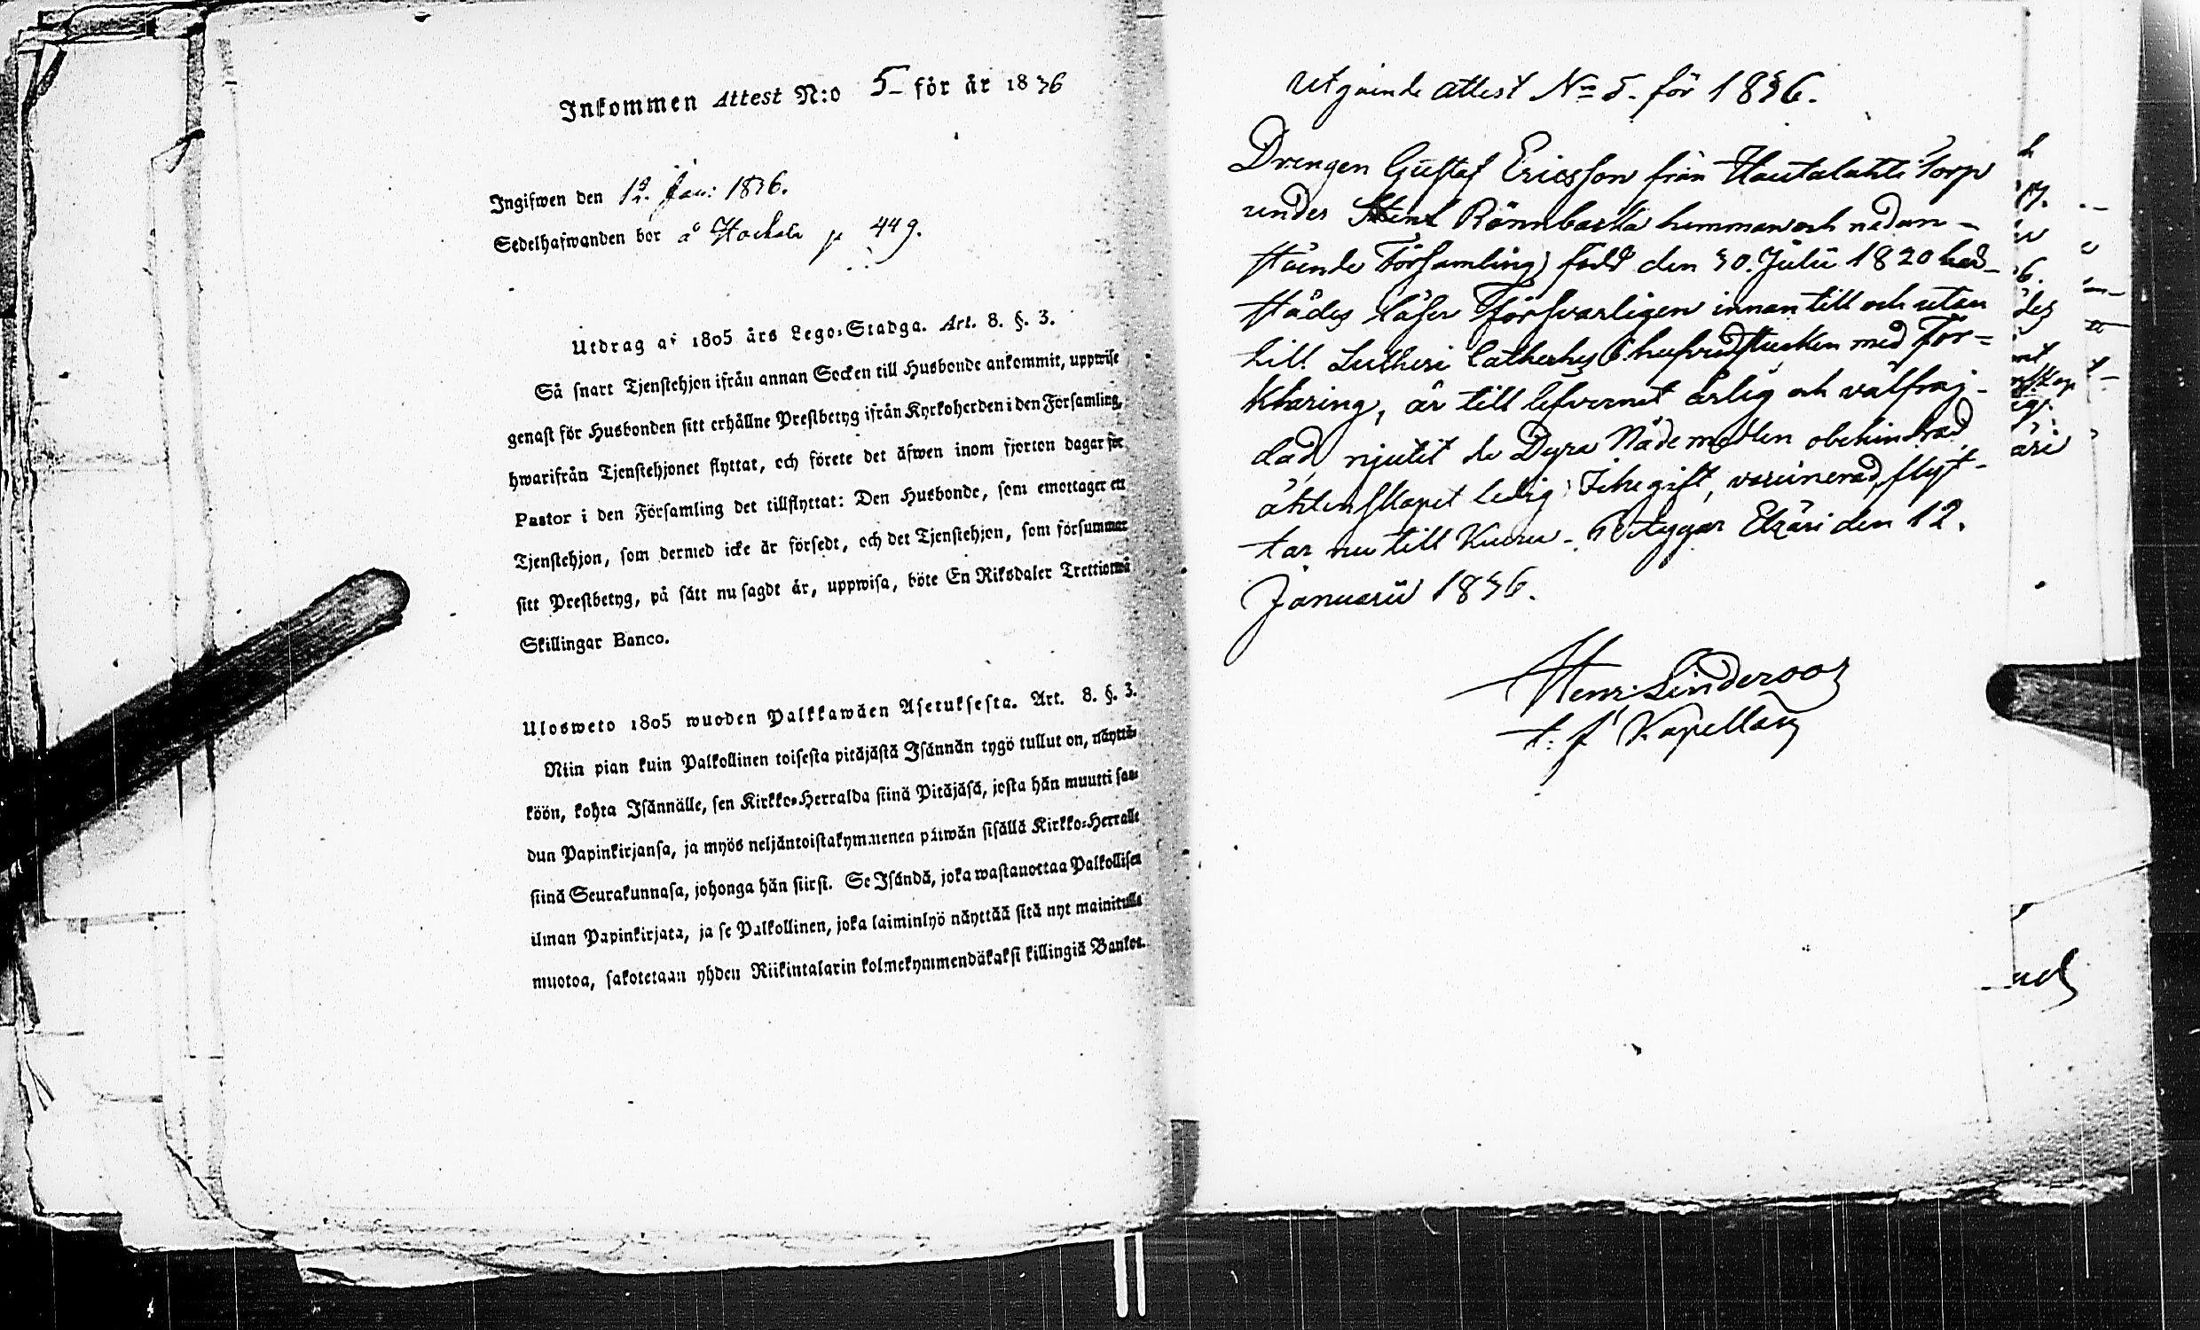 Inkommen Attest N:o 5 för år 1836
Ingifwen den 12. Jan: 1836.
Sedelhafwanden bor å Hockala p 449.
Utdrag af 1805 års Lego-Stadga. Art. 8. §. 3.
Så snart Tjenstehjon ifrån annan Socken till Husbonde ankommit, uppwise
genast för Husbonden sitt erhållne Prestbetyg ifrån Kyrkoherden i den Församling,
hwarifrån Tjenstehjonet flyttat, och förete det äfwen inom fjorton dagar för
Pastor i den Församling det tillflyttat: Den Husbonde, som emottager ett
Tjenstehjon, som dermed icke är försedt, och det Tjenstehjon, som försummar
sitt Prestbetyg, på sätt nu sagdt är, uppwisa, böte En Riksdaler Trettiotwå
Skillingar Banco.
Ulosweto 1805 wuoden Palkkawäen Asetuksesta. Art. 8. §. 3.
Niin pian kuin Palkollinen toisesta pitäjästä Isännän tygö tullut on, näyttä-
köön, kohta Isännälle, sen Kirkko-Herralda siinä Pitäjäsä, josta hän muutti saa-
dun Papinkirjansa, ja myös neljäntoistakymmenen päiwän sisällä Kirkko-Herralle
siinä Seurakunnasa, johonga hän siirsi. Se Isändä, joka wastanottaa Palkollisen
ilman Papinkirjata, ja se Palkollinen, joka laiminlyö näyttää sitä nyt mainitulla
muotoa, sakotetaan yhden Riikintalarin kolmekymmendäkaksi killingiä Bankos.
Utgående attest No 5. för 1836.
Drengen Gustaf Ericsson från Hautalahti Torp
under Rönnbacka hemman och nedan-
stående Församling, född den 30. Julii 1820 här-
städes läser försvarligen innan till och utan
till Lutheri Catheches hufvudstycken med För-
klaring, är till lefvernet ärlig och välfräj-
dad, njutit de Dyra Nådemedlen obehindrad
äktenskapet ledig, vaccinerad, flyt-
tar nu till Kuru. Betygar Etzäri den 12.
Januarii 1836.
Henr: Linderoos
t. f. Kapellan